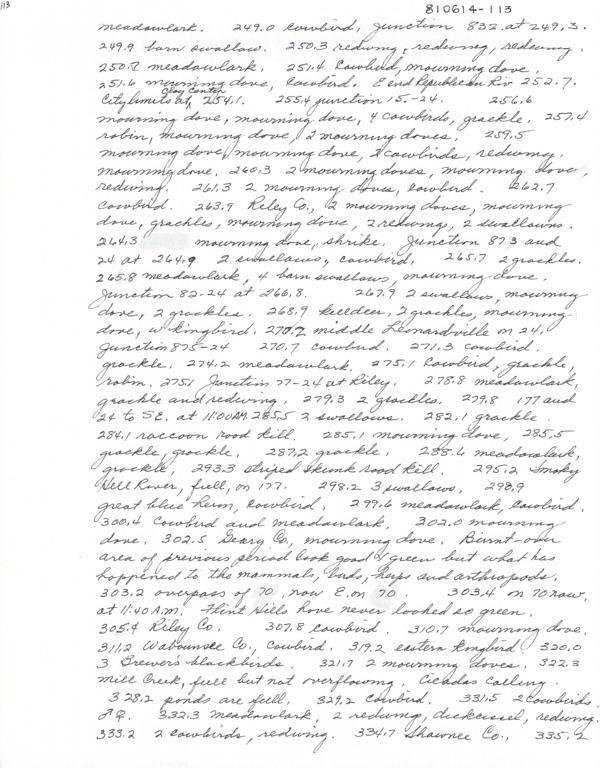 113
810614-113
meadowlark. 249.0 cowbird, junction 832 at 249.3.
249.9 barn swallow. 250.3 redwing, redwing, redwing.
250.7 meadowlark. 251.4 Cowbird, mourning dove,
251.6 mourning dove, Cowbird. E end Republican Riv 252.7.
Clay Center
City limits at 254.1. 255.4 junction 15-24. 256.6
mourning dove, mourning dove, 4 cowbirds, grackle. 257.4
robin, mourning dove, 2 mourning doves. 259.5
mourning dove, mourning dove, 2 cowbirds, redwing,
mourning dove. 260.3 2 mourning doves, mourning dove,
redwing. 261.3 2 mourning doves, cowbird. 262.7
cowbird. 263.9 Riley Co., 2 mourning doves, mourning
dove, grackles, mourning dove, 2 redwings, 2 swallows.
264.3 mourning dove, shrike. Junction 873 and
24 at 264.9 2 swallows, cowbird. 265.7 2 grackles.
265.8 meadowlark, 4 barn swallows, mourning dove.
Junction 82-24 at 266.8. 267.9 2 swallows, mourning
dove, 2 grackles. 268.9 killdeer, 2 grackles, mourning
dove, w kingbird. 270.2 middle Leonardville on 24,
Junction 875-24 270.7 cowbird. 271.3 cowbird.
grackle. 274.2 meadowlark. 275.1 Cowbird, grackle,
robin. 275.1 Junction 77-24 at Riley. 278.8 meadowlark,
grackle and redwing. 279.3 2 grackles. 279.8 177 and
24 to SE. at 11:00 AM. 285.5 2 swallows. 282.1 grackle.
284.1 raccoon road kill. 285.1 mourning dove, 285.5
grackle, grackle. 287.2 grackle. 288.6 meadowlark,
grackle, 293.3 striped skunk road kill. 295.2 Smoky
Hill River, full, on 177. 298.2 3 swallows, 298.9
great blue heron, cowbird. 299.6 meadowlark, cowbird.
300.4 Cowbird and meadowlark. 302.0 mourning
dove. 302.5 Geary Co, mourning dove. Burnt-over
area of previous period look good & green but what has
happened to the mammals, birds, herps and arthropods.
303.2 overpass of 70, now E. on 70. 303.4 on 70 now,
at 11:40 A.M. Flint Hills have never looked so green.
305.4 Riley Co. 307.8 cowbird. 310.7 mourning dove.
311.2 Wabaunsee Co., cowbird. 319.2 eastern kingbird 320.0
3 Brewer's blackbirds. 321.7 2 mourning doves. 322.3
Mill Creek, full but not overflowing. Cicadas calling.
328.2 ponds are full. 329.2 cowbird. 331.5 2 cowbirds
♂♀. 332.3 meadowlark, 2 redwing, dickcissel, redwing.
333.2 2 cowbirds, redwing. 334.7 Shawnee Co., 335.2